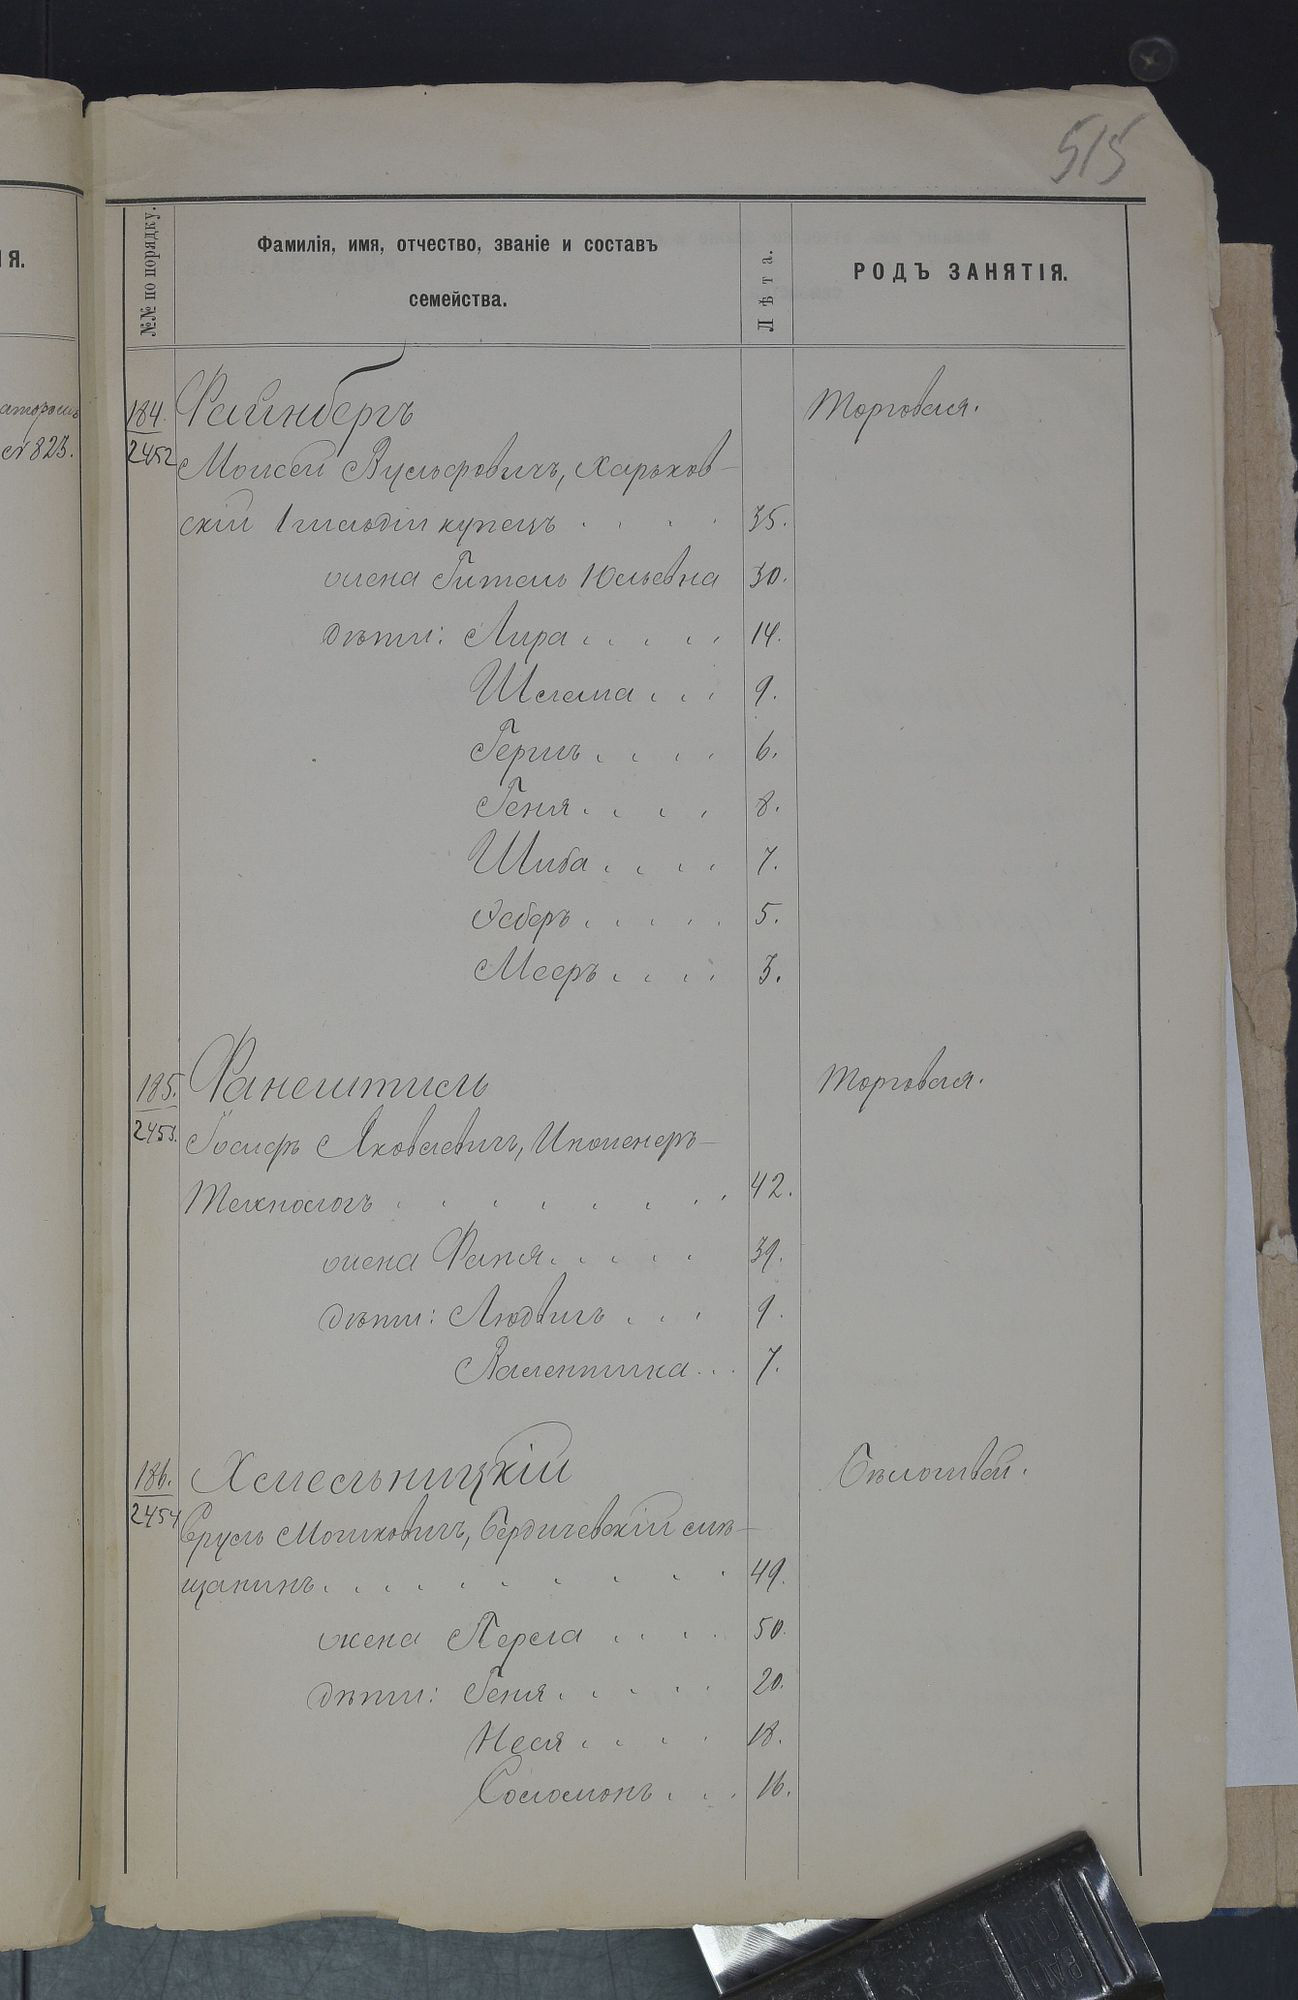 515
Я.
№№ по порядку.
Фамилія, имя, отчество, званіе и составъ
семейства.
Лѣта.
РОДЪ ЗАНЯТІЯ.
№ 823.
184. Файнбергъ Торговля.
2452 Моисей Вульфовичъ, Харьков-
скій 1 гильдіи купецъ . . . . 35.
жена Гитель Юльевна 30.
дѣти: Лира . . . . . 14.
Шлема . . . 9.
Гершъ . . . . 6.
Геня . . . . 8.
Шиба . . . . 7.
Эсберъ . . . . . 5.
Мееръ . . . . 3.
185. Фанештиль Торговля.
2453. Іосифъ Яковлевичъ, Инженеръ-
Технологъ . . . . . . . 42.
жена Фаня . . . . . 39.
дѣти: Людвигъ . . . 9.
Валентина . . . 7.
186. Хмельницкій Бѣлошвей.
2454 Сруль Мошковичъ, Бердичевскій мѣ-
щанинъ . . . . . . . . . 49.
жена Перла . . . . 50.
дѣти: Геня . . . . . 20.
Неся . . . . 18.
Соломонъ . . . 16.